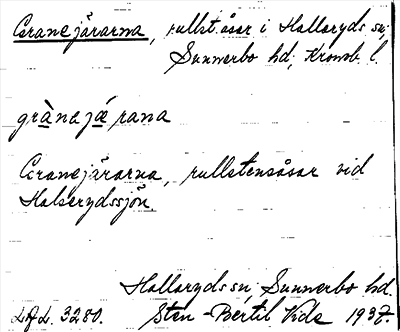 Granejärarna, rullst.åsar i Hallaryds sn,
Sunnerbo hd, Kronob. l.
grànajǽrana
Granejärarna, rullstensåsar vid
Halserydssjön.
Hallaryds sn, Sunnerbo hd.
LAL. 3280. Sten-Bertil Vide 1937.